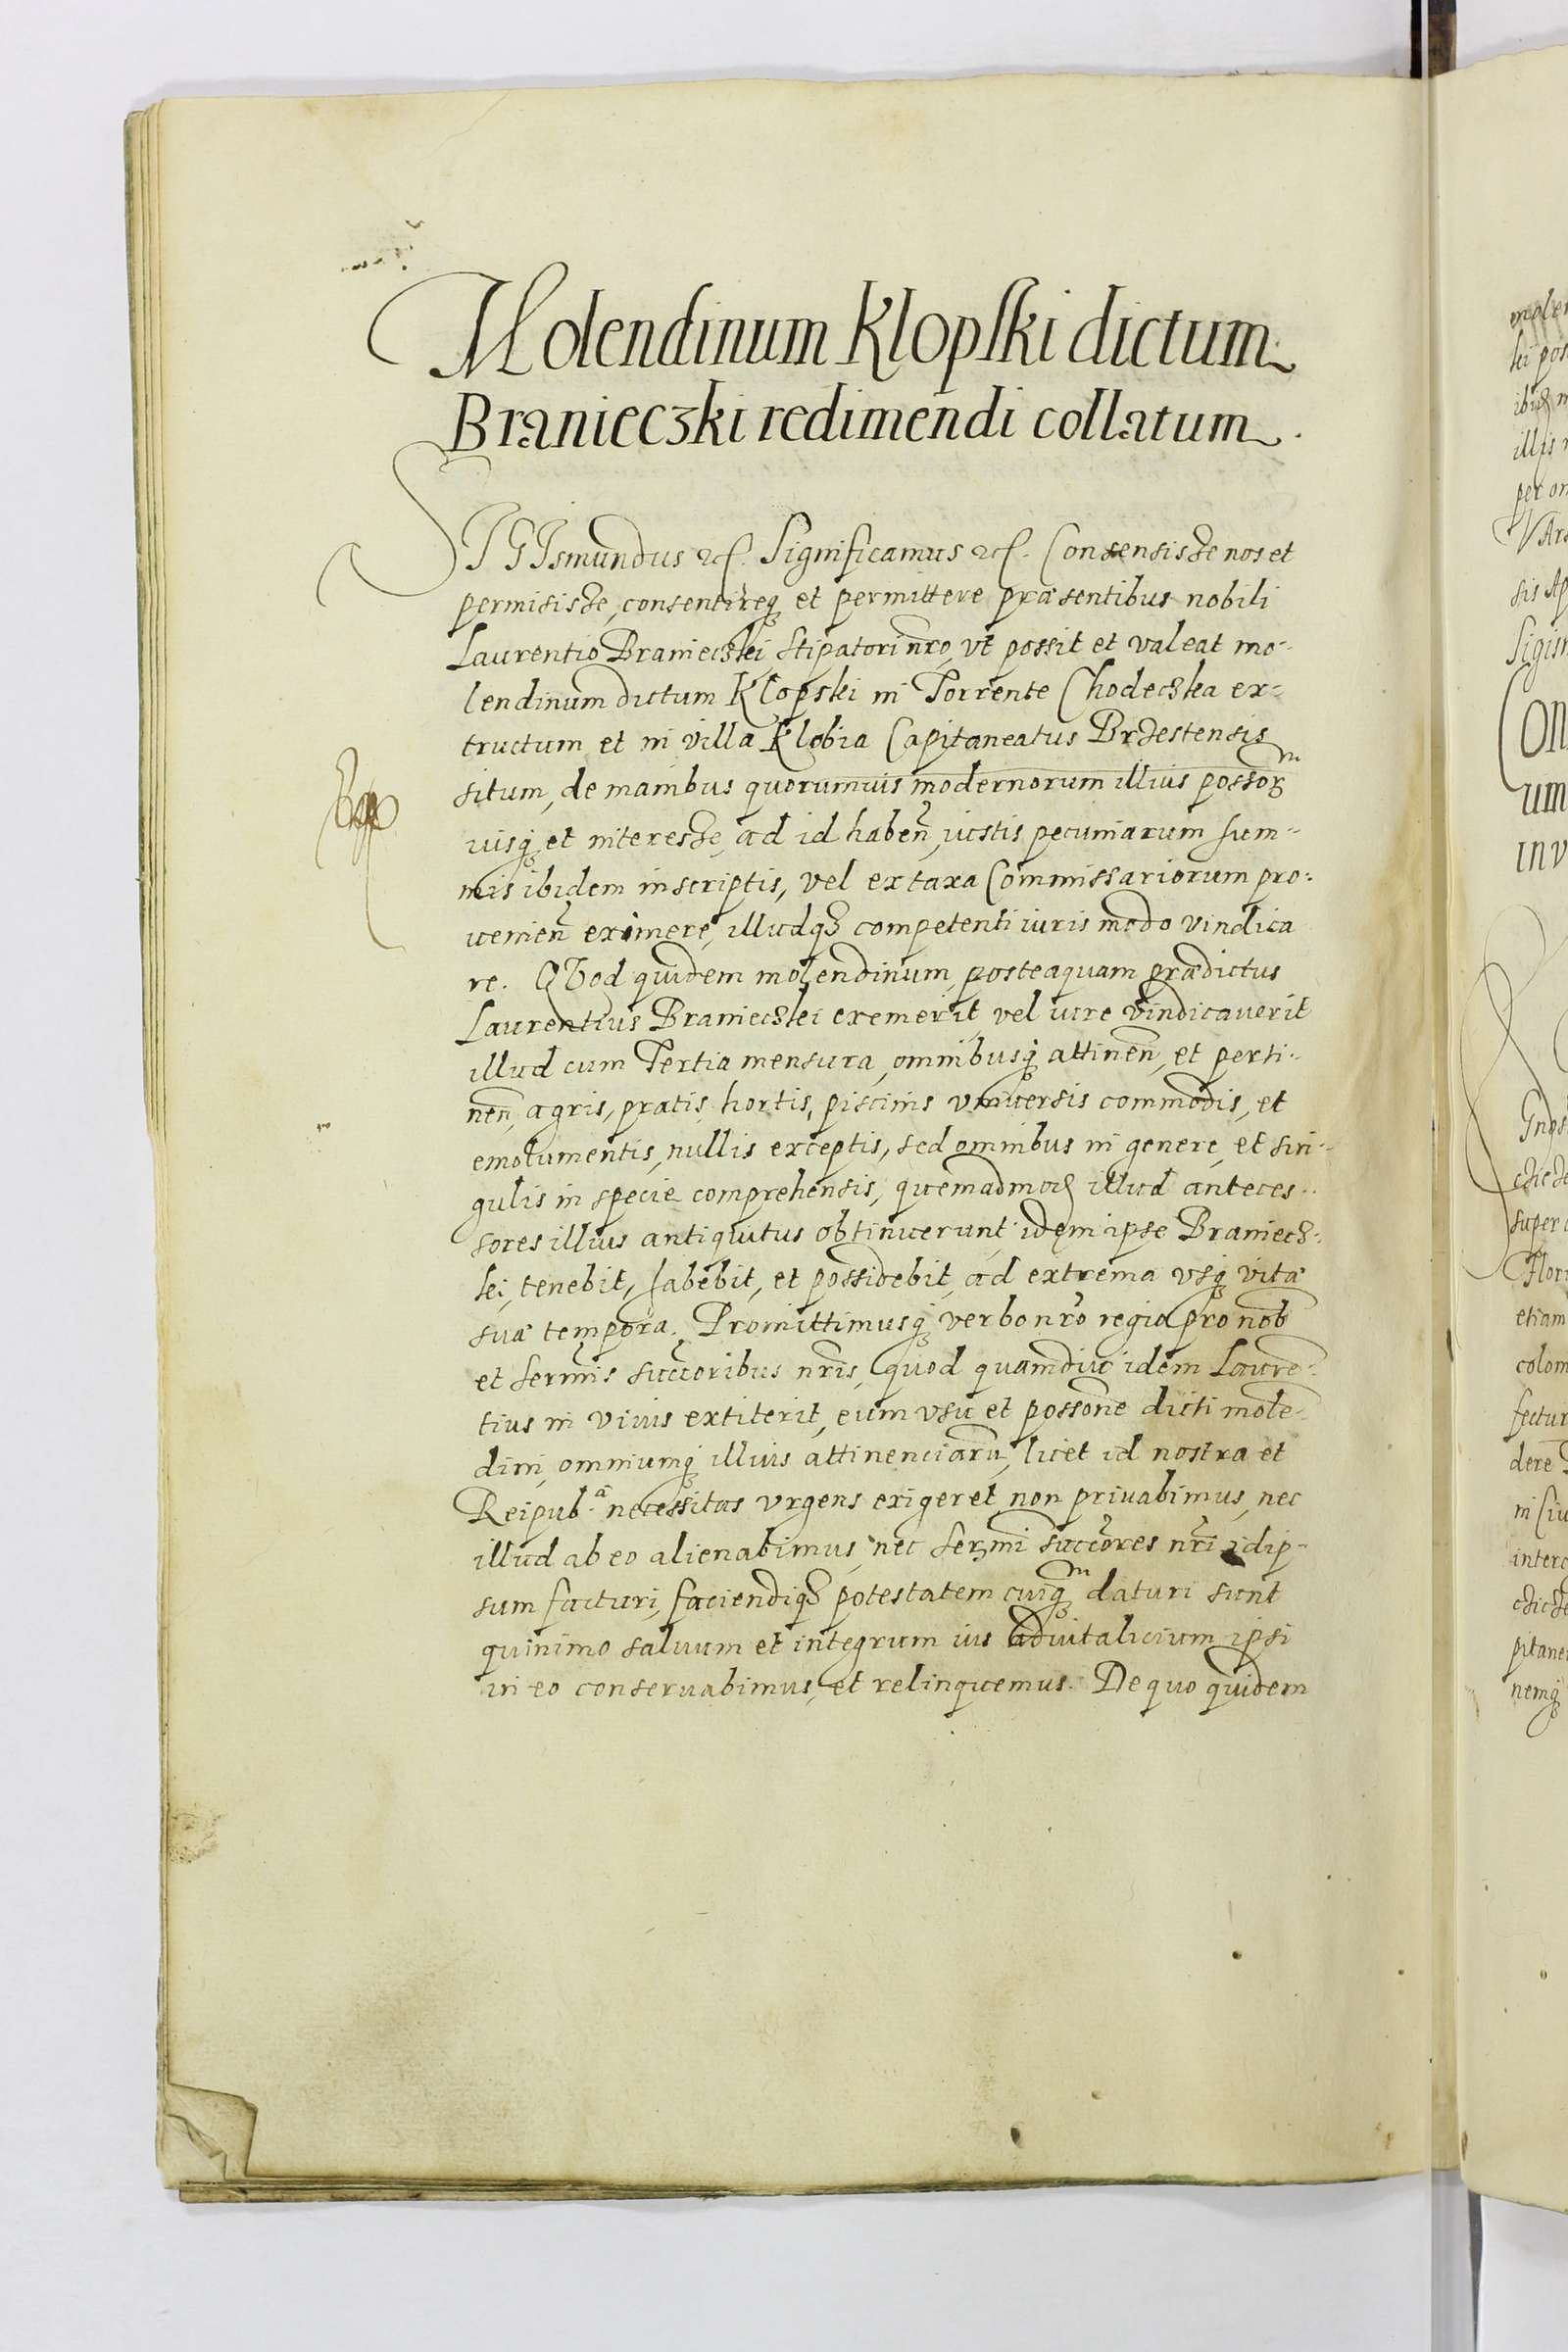 Molendinum Klopski dictum
Branieczki redimendi collatum.
SIGIsmundus etc. Significamus etc. Consensisse nos et
permisisse, consentireq; et permittere præsentibus nobili
Laurentio Branieczki, stipatori nro, vt possit et valeat mo-
lendinum dictum Klopski in Torrente Chodeczka ex-
tructum, et in villa Klobia Capitaneatus Brzestensis
situm, de manibus quorumuis modernorum illius possor
iusq; et interesse, ad id haben, iustis pecuniarum sum-
mis ibidem inscriptis, vel ex taxa Commissariorum pro-
uenien eximere, illudq; competenti iuris modo vindica
re. QVod quidem molendinum, posteaquam prædictus
Laurentius Branieczki exemerit, vel iure vindicauerit
illud cum Tertia mensura, omnibusq; attinen, et perti-
nen, agris, pratis, hortis, piscinis vniuersis commodis, et
emolumentis, nullis exceptis, sed omnibus in genere, et sin-
gulis in specie comprehensis, quemadmod illud anteces-
sores illius antiquitus obtinuerunt, idem ipse Braniecz-
ki, tenebit, habebit, et possidebit, ad extrema vsq; vitæ
suæ tempora. Promittimusq; verbo nro regio pro nob
et sermis succoribus nris, quod quamdiu idem Lauren-
tius in viuis extiterit, eum vsu et possone dicti molen-
dini, omniumq; illius attinenciaru, licet id nostra et
Reipub.a necessitas vrgens exigeret, non priuabimus, nec
illud ab eo alienabimus, nec sermi succores nri idip-
sum facturi, faciendiq; potestatem cuiq;m daturi sunt
quinimo saluum et integrum ius aduitalicium ipsi
in eo conseruabimus, et relinquemus. De quo quidem